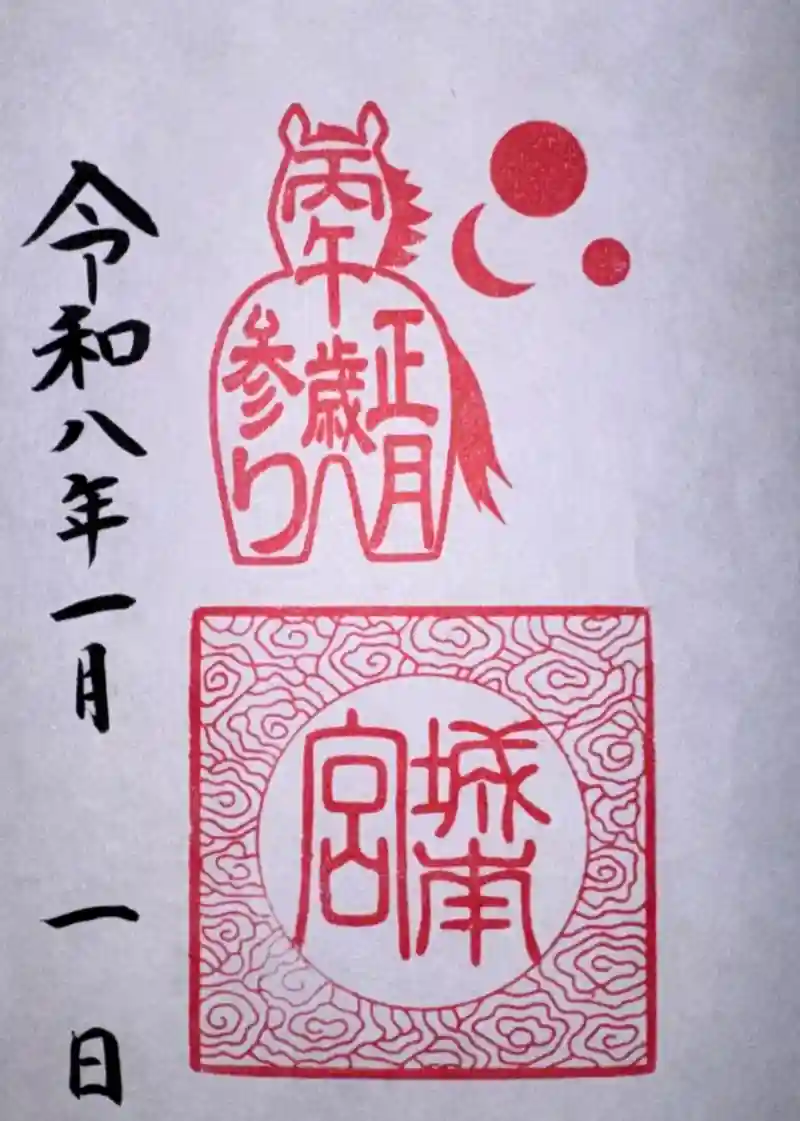 丙午
正月
歳
参り
城南
宮
令和八年一月一日